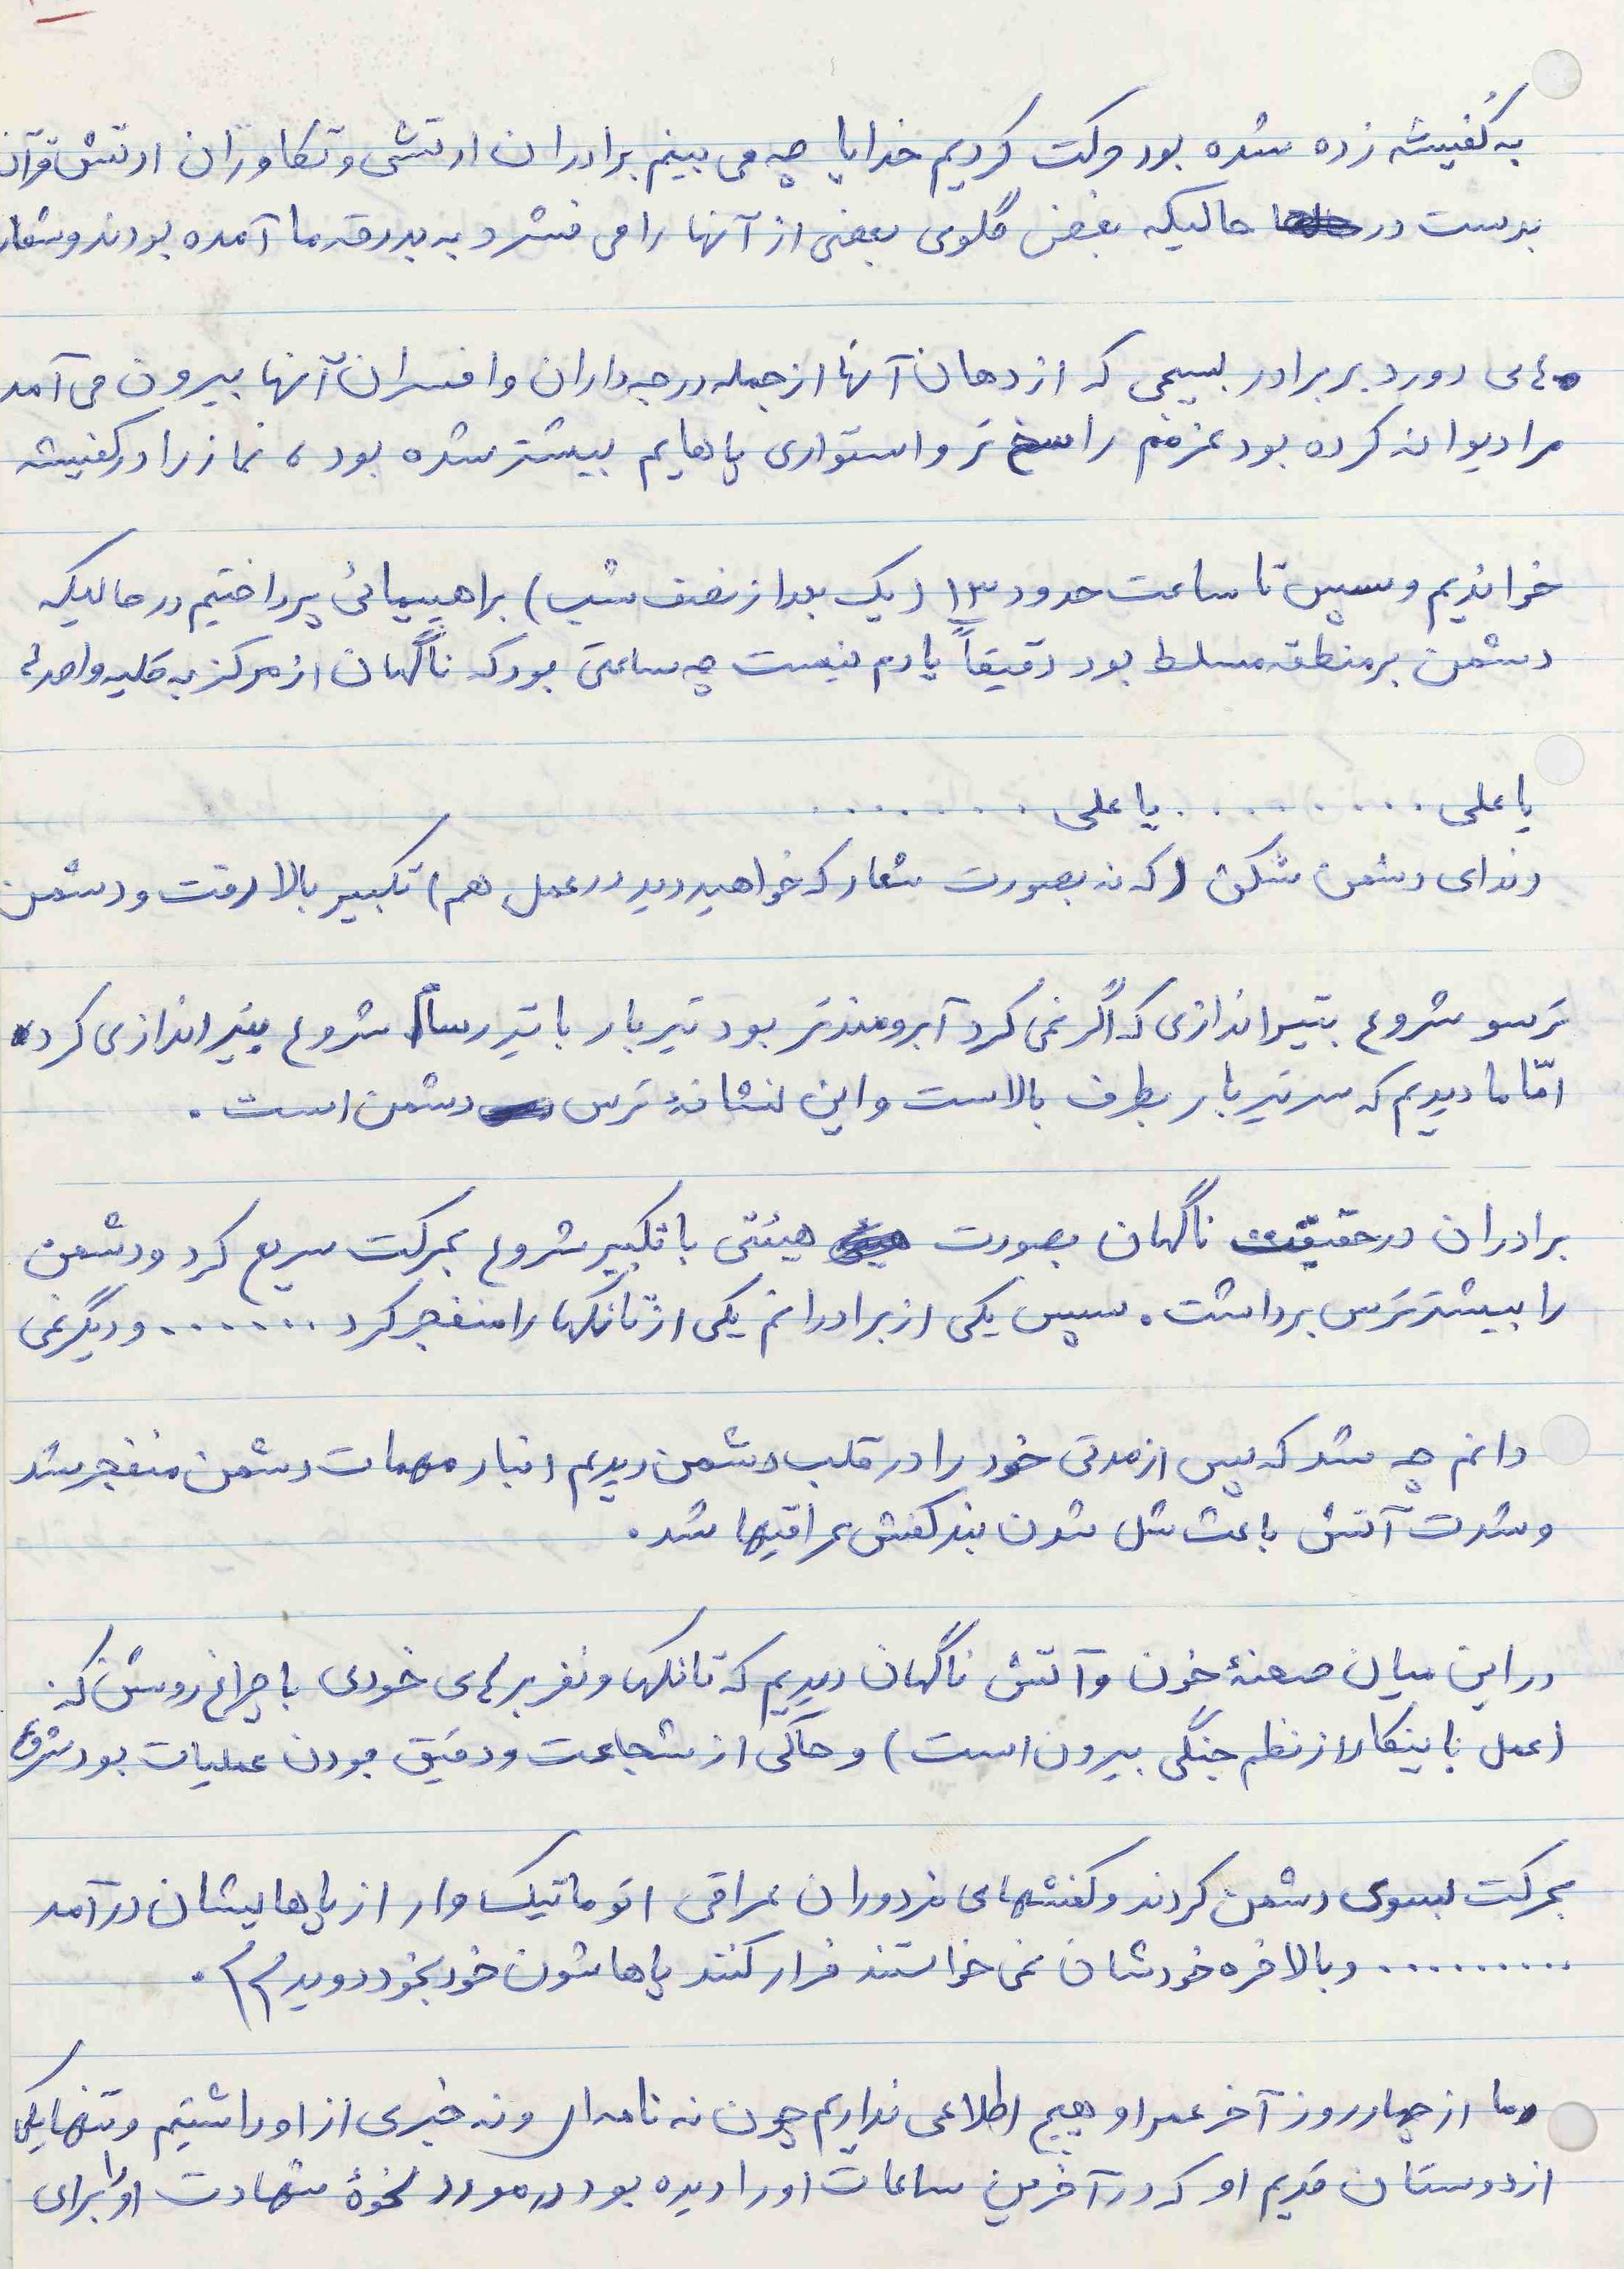 به کُفیشه زده شده بود حرکت کردیم خدایا چه می بینم برادران ارتشی و تکاوران ارتش قرآن
بدست در حالیکه بغض گلوی بعضی از آنها را می فشرد به بدرقه ما آمده بودند و شعار
های درود بر برادر بسیجی که از دهان آنها از جمله درجه داران و افسران آنها بیرون می آمد
مرا دیوانه کرده بود عزمم راسخ تر و استواری پاهایم بیشتر شده بود، نماز را در کفیشه
خواندیم و سپس تا ساعت حدود ۱۳ (یک بعد از نصف شب) براهپیمائی پرداختیم در حالیکه
دشمن بر منطقه مسلط بود دقیقاً یادم نیست چه ساعتی بود که ناگهان از مرکز به کلیه واحدها
یا علی . . . . . . . . . یا علی . . . . . . .
و ندای دشمن شکن (که نه بصورت شعار که خواهید دید در عمل هم) تکبیر بالا رفت و دشمن
ترسو شروع بتیراندازی که اگر نمی کرد آبرومندتر بود تیربار با تیر رسام شروع بتیراندازی کرد
امّا ما دیدیم که سر تیربار بطرف بالاست و این نشانهٔ ترس دشمن است .
برادران در حقیقت ناگهان بصورت هیئتی با تکبیر شروع بحرکت سریع کرد و دشمن
را بیشتر ترس برداشت . سپس یکی از برادرانم یکی از تانکها را منفجر کرد . . . . . . . و دیگر نمی
دانم چه شد که پس از مدتی خود را در قلب دشمن دیدیم انبار مهمات دشمن منفجر شد
و شدت آتش باعث شل شدن بند کفش عراقیها شد .
در این میان صحنهٔ خون و آتش ناگهان دیدیم که تانکها و نفربرهای خودی با چراغ روشن که
(عمل باینکار از نظم جنگی بیرون است) و حاکی از شجاعت و دقیق بودن عملیات بود شروع
بحرکت بسوی دشمن کردند و کفشهای مزدوران عراقی اتوماتیک وار از پاهایشان درآمد
. . . . . . . . . و بالاخره خودشان نمی خواستند فرار کنند پاهاشون خود بخود دوید)) .
و ما از چهار روز آخر عمر او هیچ اطلاعی نداریم چون نه نامه ای و نه خبری از او داشتیم و تنها یکی
از دوستان قدیم او که در آخرین ساعات او را دیده بود در مورد نحوهٔ شهادت او برای